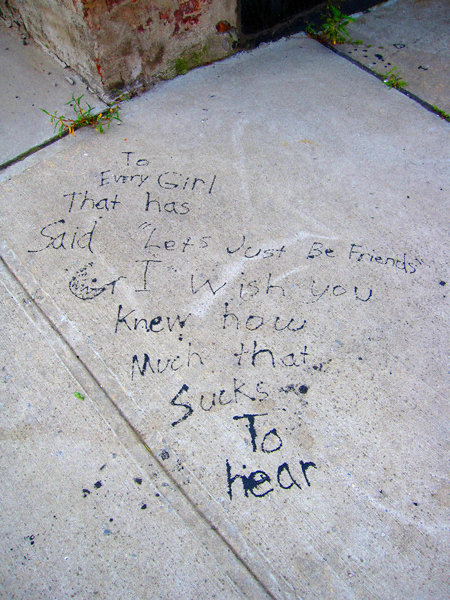 To
Every Girl
That has
Said "Lets Just Be Friends"
I Wish you
Knew how
Much that
Sucks
To
hear